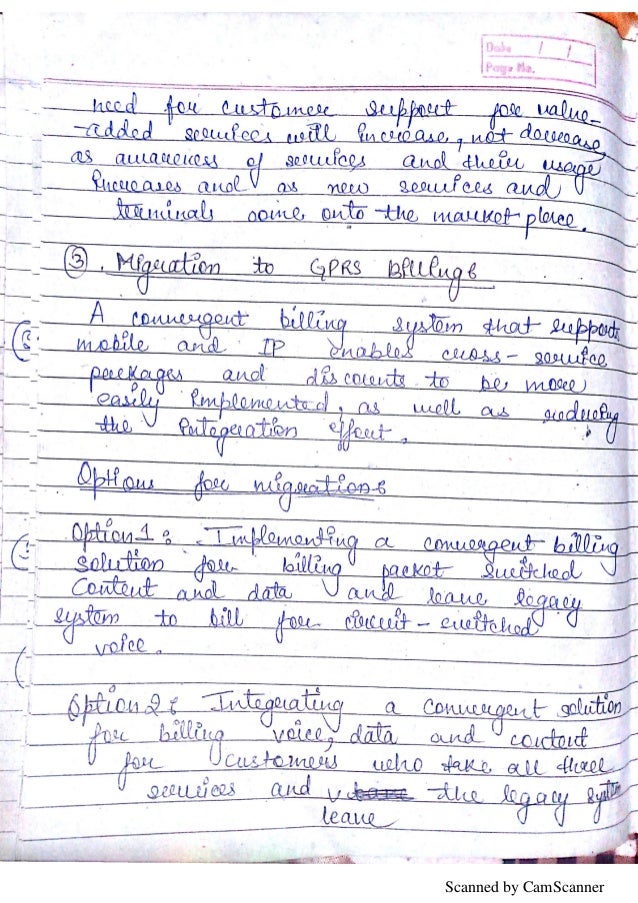 Date / /
Page No.
need for customer support for value-
-added services will increase, not decrease,
as awareness of services and their usage
increases and as new services and
terminals come onto the market place.
③. Migration to GPRS Billing:
A convergent billing system that support
mobile and IP enables cross-service
packages and discounts to be more
easily implemented, as well as reducing
the integeration effort.
Options for migration:
Option 1: Implementing a convergent billing
solution for billing packet switched
Content and data and leave legacy
system to bill for circuit-switched
voice.
Option 2: Integerating a convergent solution
for billing voice, data and content
for customers who take all three
services and the legacy system
leave
Scanned by CamScanner